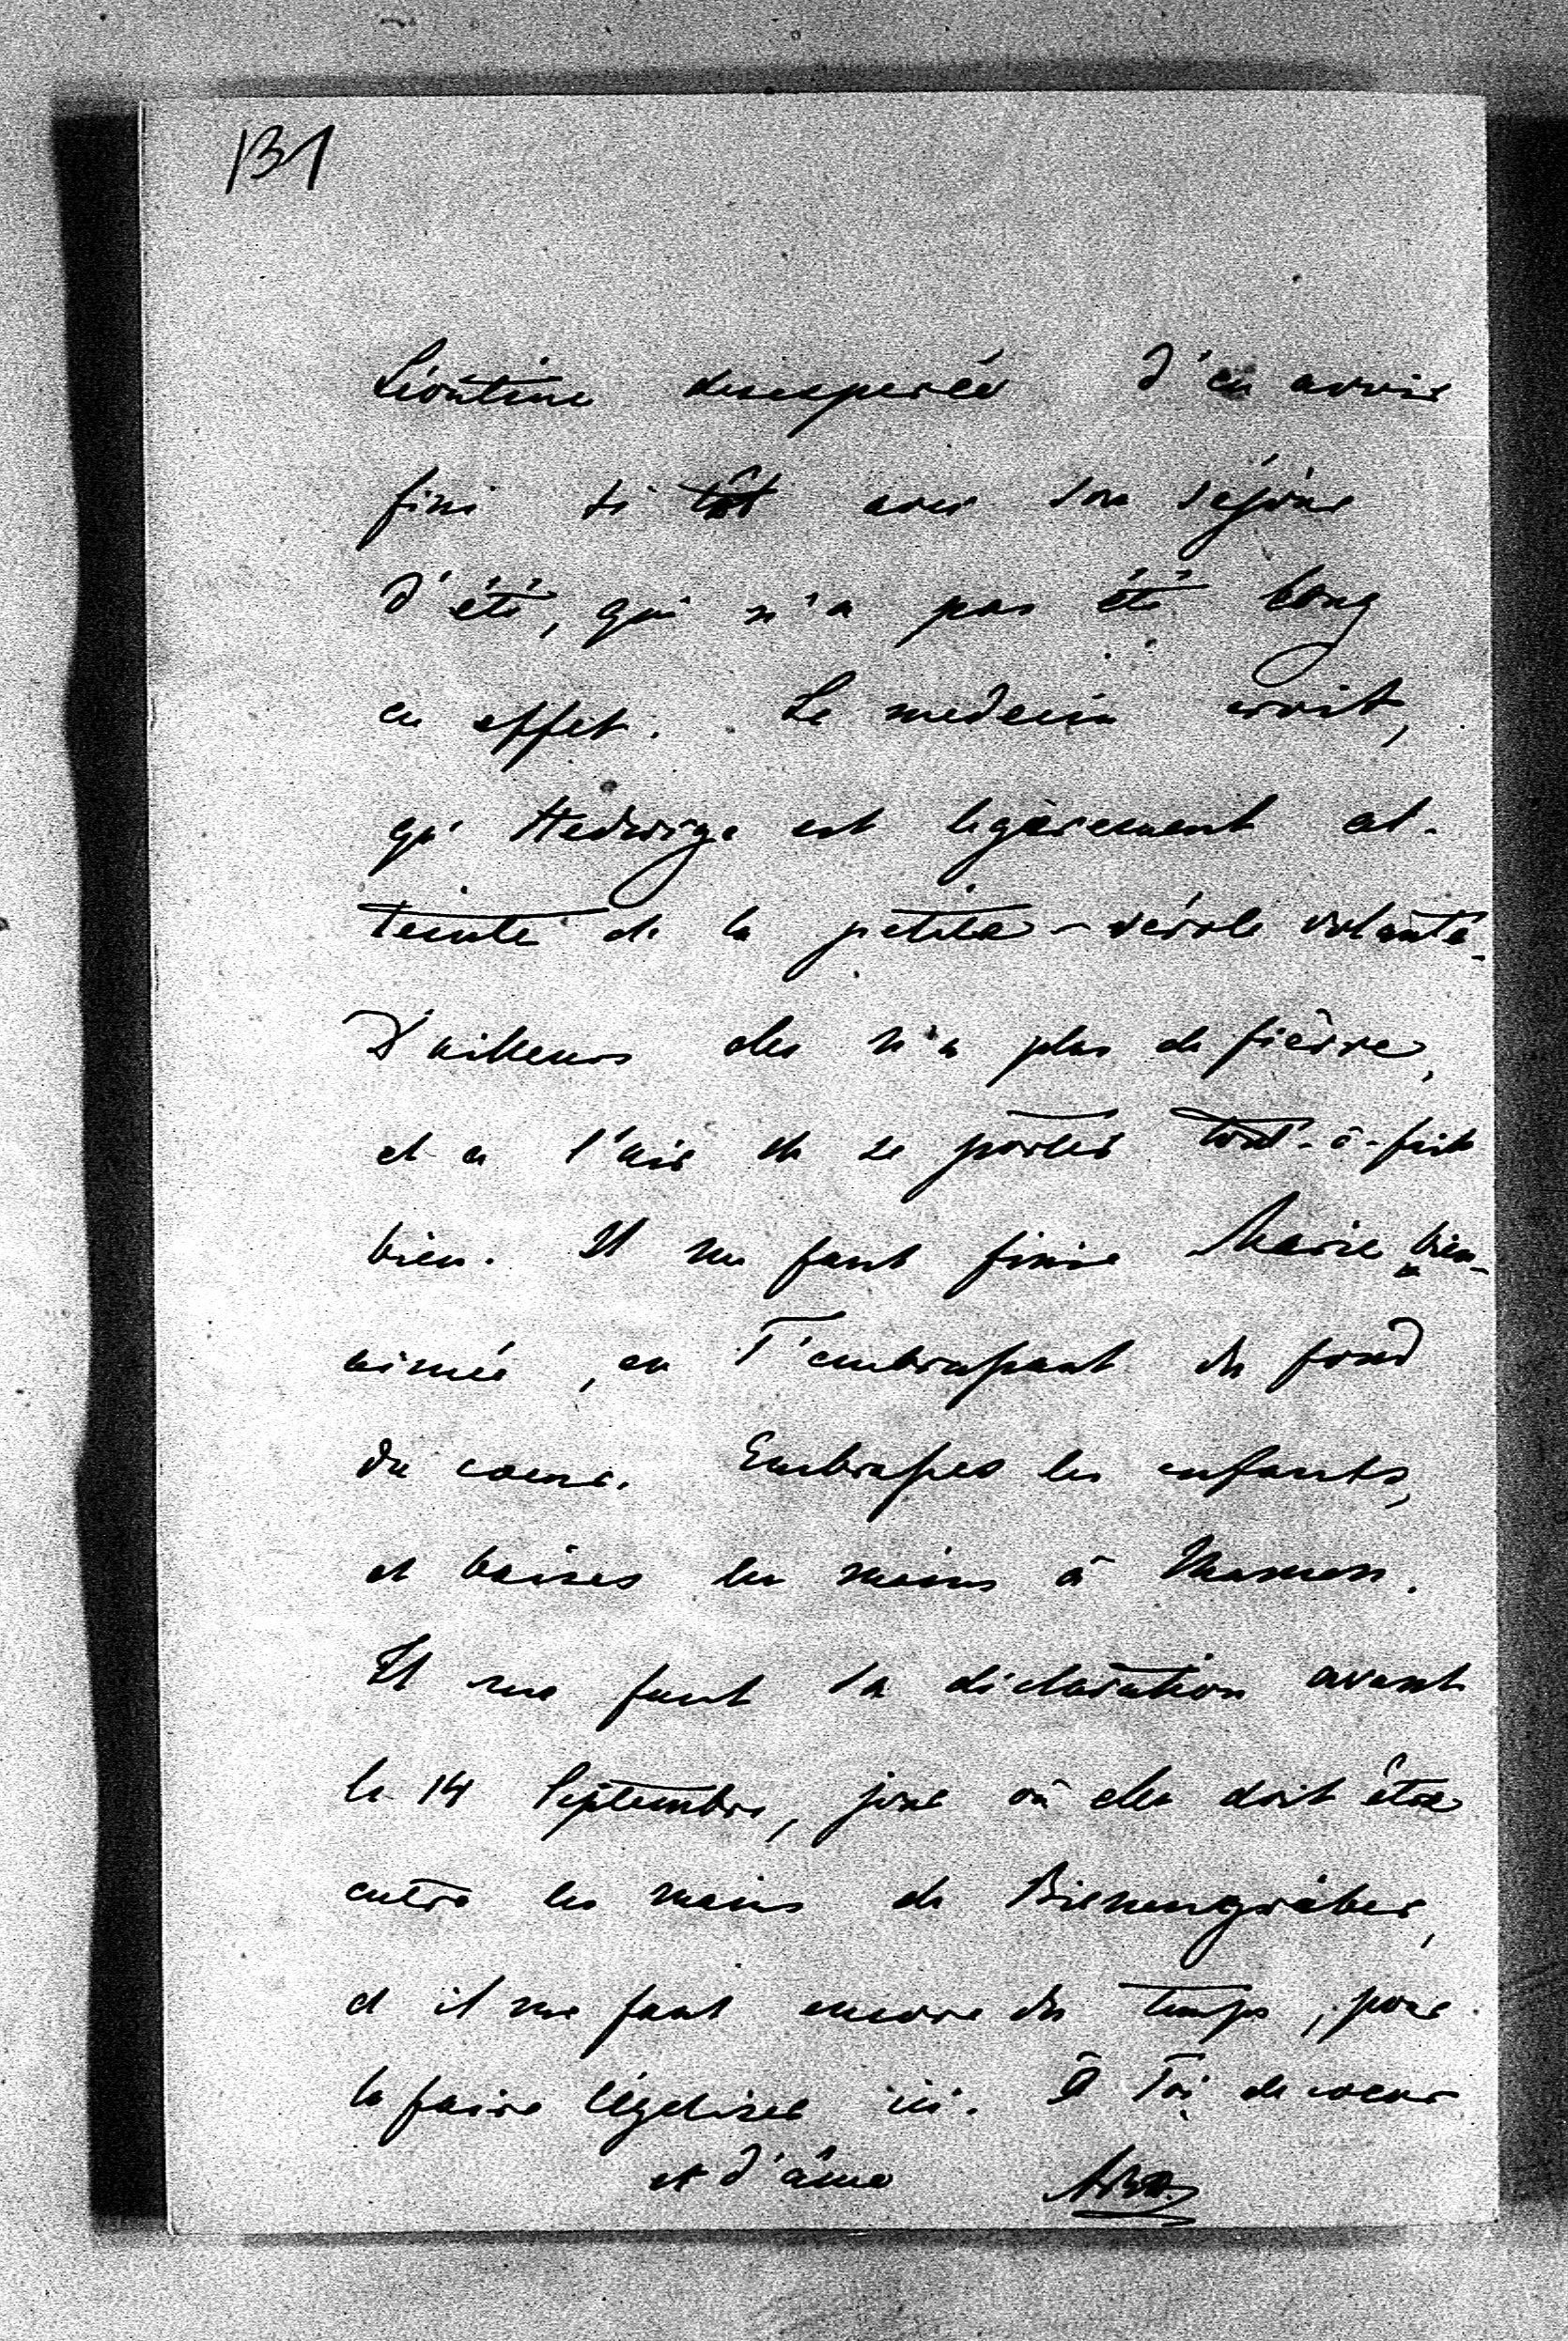 131
Léontine desesperée d'en avoir
fini si tôt avec son séjour
d'été, qui n'a pas été long
en effet. Le medecin croit,
qu' Hedwige est legèrement at-
teinte de la petite-vérole volante.
D'ailleurs elle n'a plus de fièvre,
et a l'air de se porter tout-à-fait
bien. Il me faut finir Marie bien-
aimée, en T'embrassant du fond
du coeur. Embrasses les enfants,
et baises les mains à Maman.
Il me faut la déclaration avant
le 14 Septembre, jour où elle doit être
entre les mains de Bienengräber,
et il me faut encore du temps, pour
la faire légaliser ici. À Toi de coeur
et d'âme